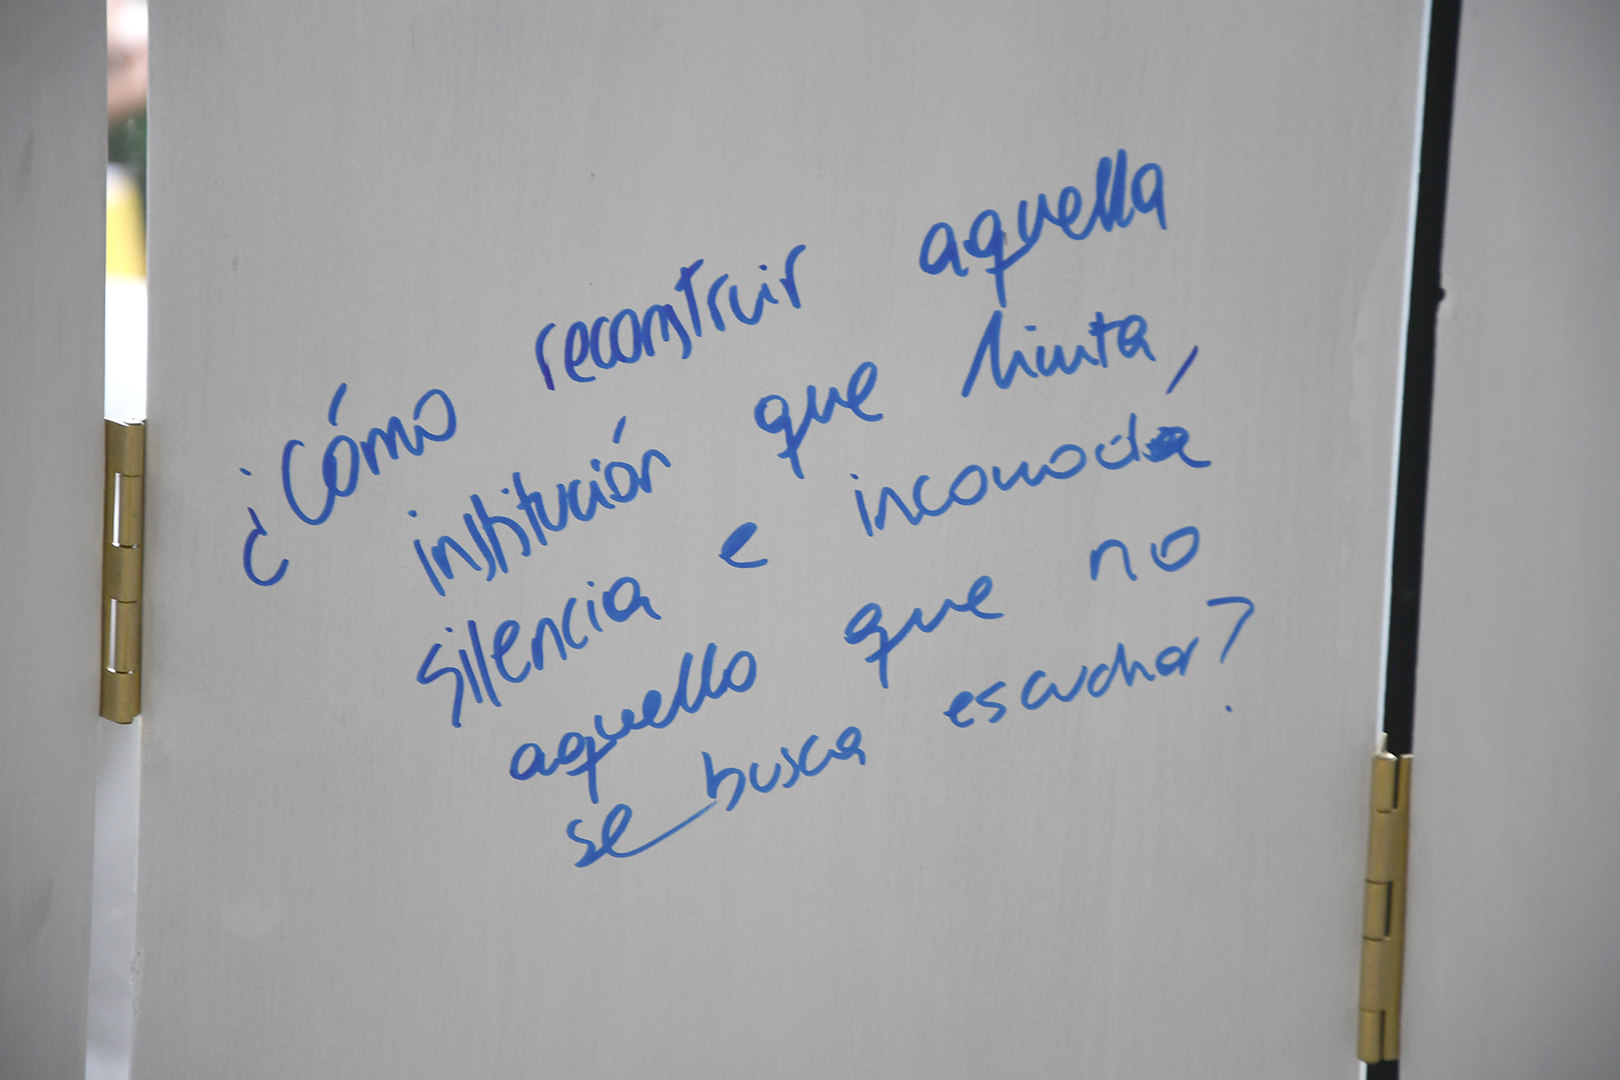 ¿Cómo reconstruir aquella
institución que limita,
silencia e incomoda
aquello que no
se busca escuchar?